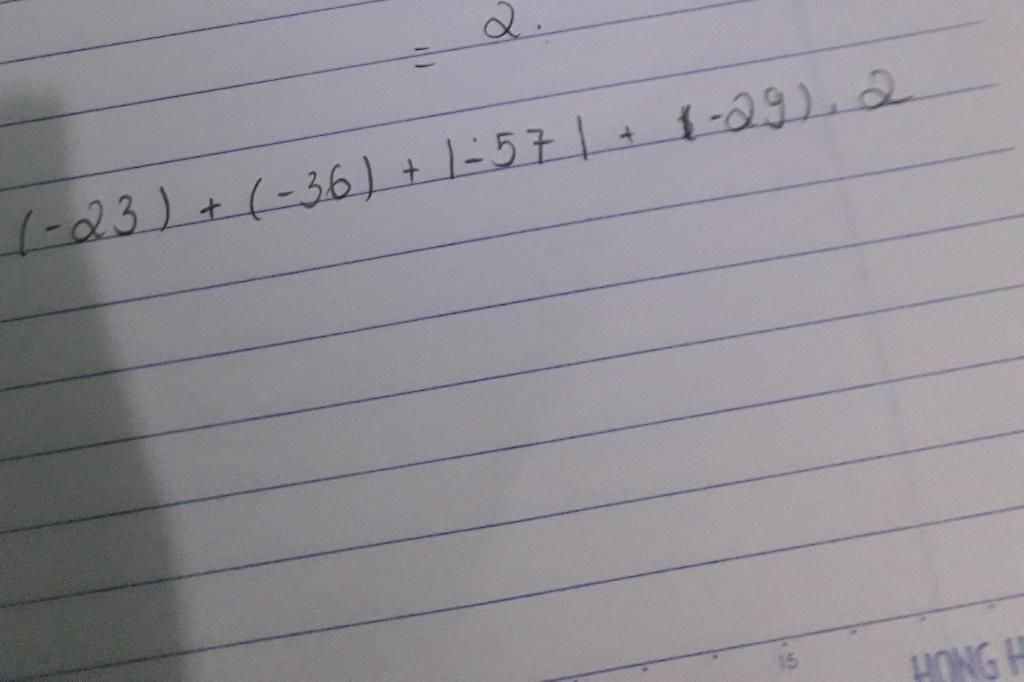 = 2.
(-23) + (-36) + |-57| + (-29). 2
15
HONG H